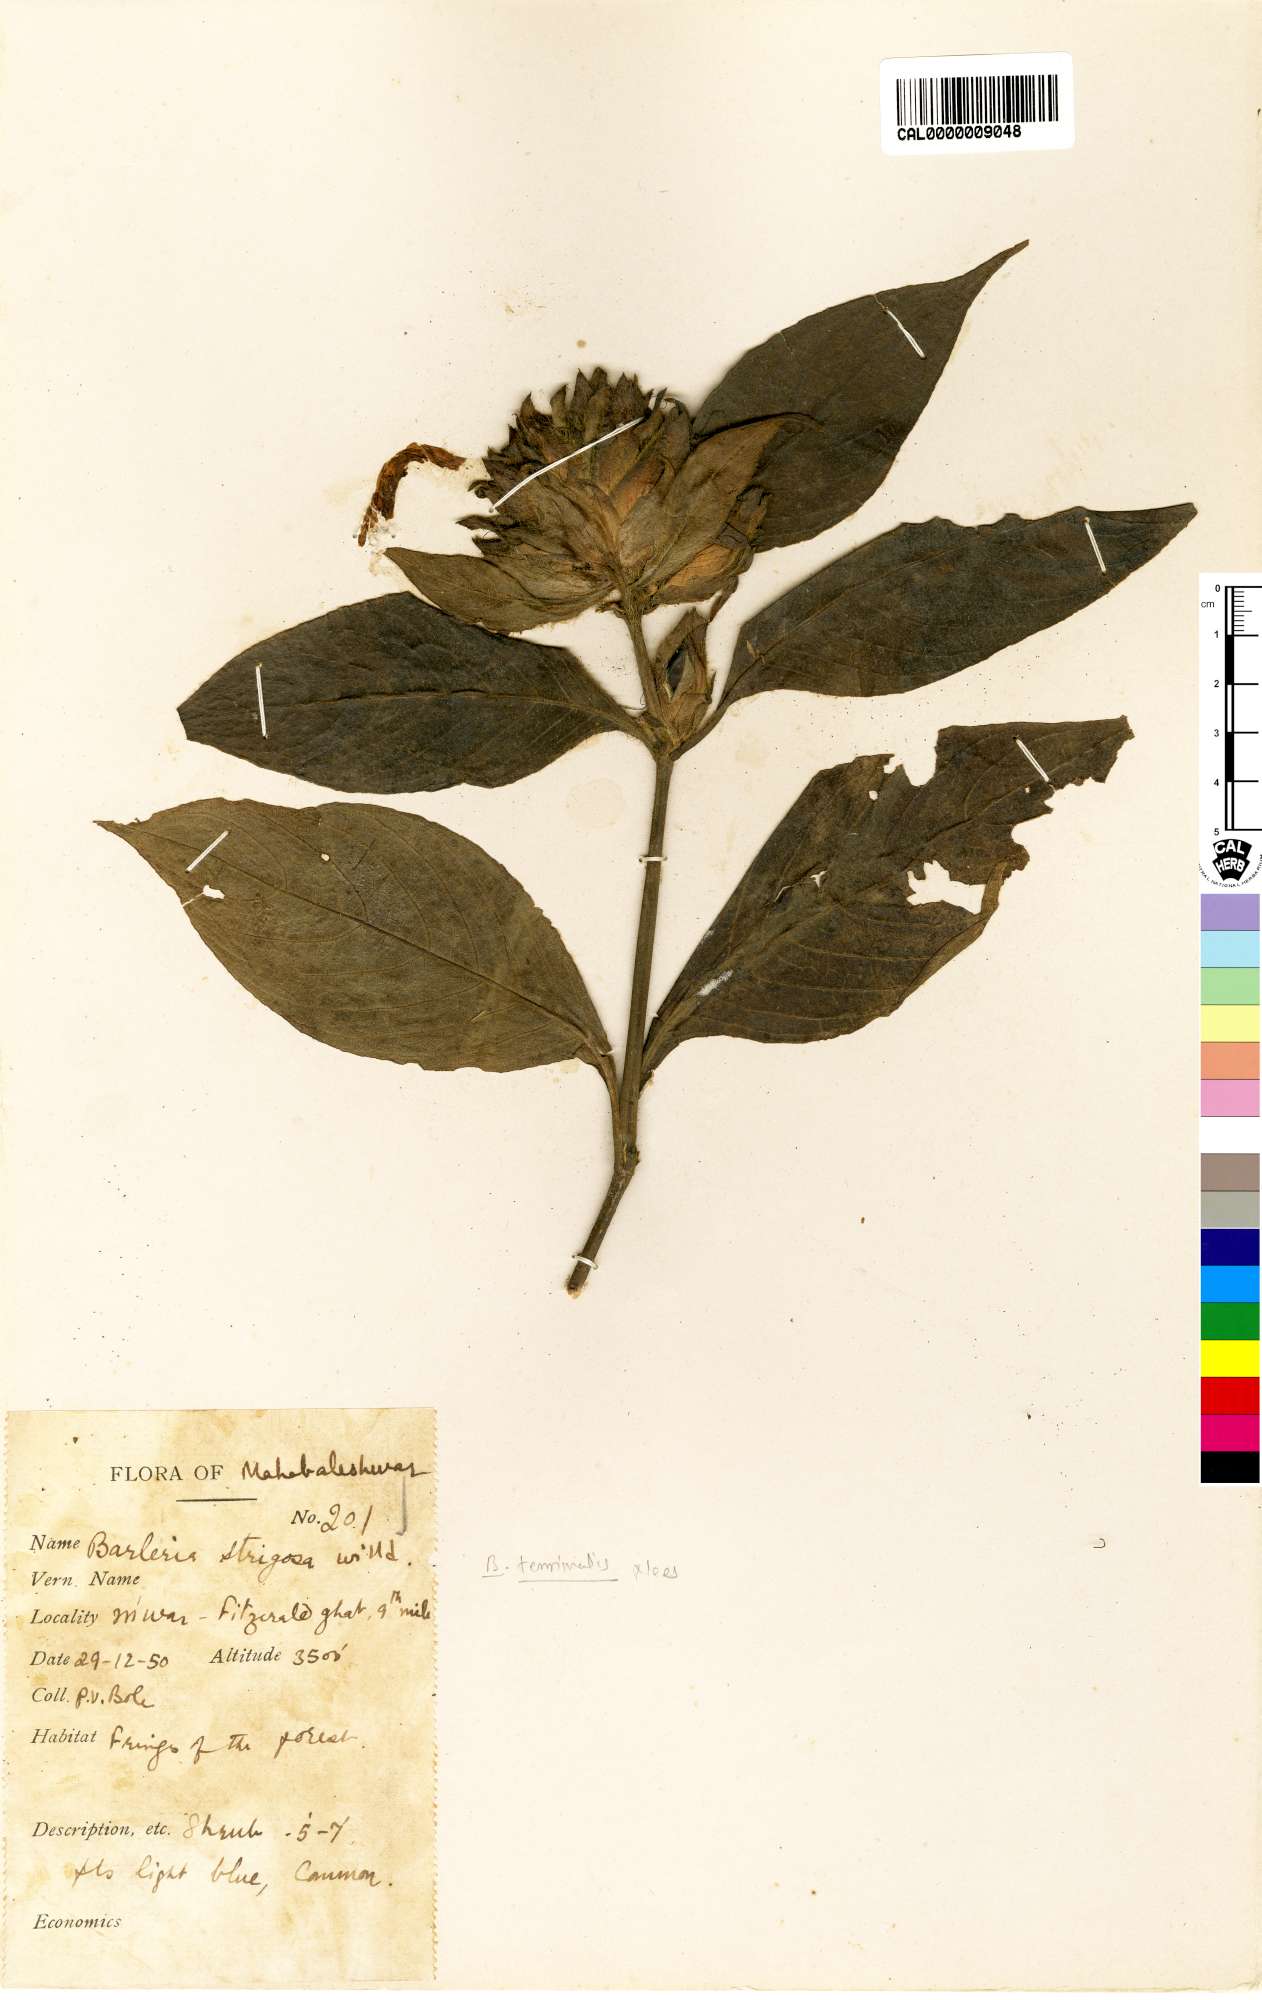 CAL0000009048
0
cm
1
2
3
4
5
CAL
HERB
FLORA OF Mahabaleshwar
No. 201
Name Barleria strigosa willd.
Vern. Name
Locality m'war - Fitzerald ghat, 9th mile
Date 29-12-50 Altitude 3500'
Coll. P.V. Bole
Habitat Fringe of the forest.
Description, etc. Shrub - 5'-7'
fls light blue, Common.
Economics
B. terminalis Nees